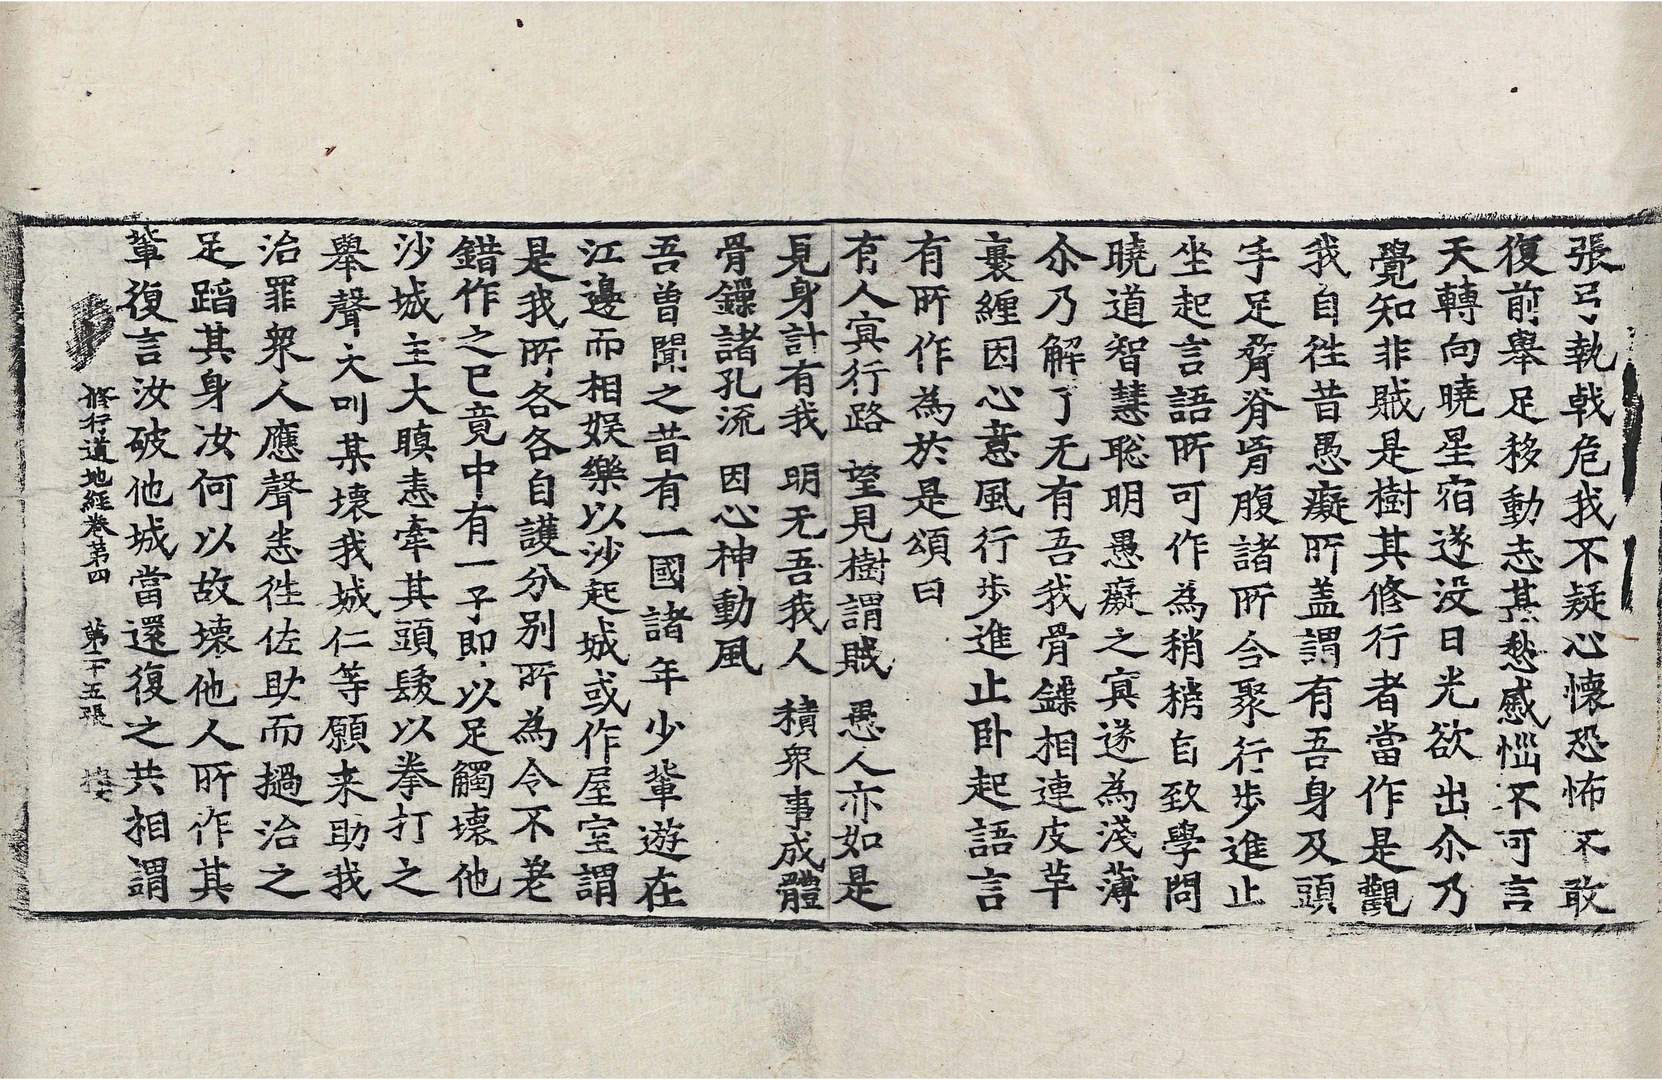 張弓執戟危我不疑心懷恐怖不敢
復前舉足移動志甚愁慼惱不可言
天轉向曉星宿遂没日光欲出尒乃
覺知非賊是樹其修行者當作是觀
我自徃昔愚癡所盖謂有吾身及頭
手足脊腹諸所合聚行步進止
坐起言語所可作為稍稍自致學問
曉道智慧聡明愚癡之冥遂為淺薄
尒乃解了无有吾我骨鏁相連皮革
裹纏因心意風行步進止卧起語言
有所作為於是頌曰
有人冥行路 望見樹謂賊 愚人亦如是
見身計有我 明无吾我人 積衆事成體
骨鏁諸孔流 因心神動風
吾曾聞之昔有一國諸年少輩遊在
江邊而相娱樂以沙起城或作屋室謂
是我所各各自護分别所為令不差
錯作之已竟中有一子即以足觸壞他
沙城主大瞋恚牽其頭髮以拳打之
舉聲大叫某壞我城仁等願来助我
治罪衆人應聲悉徃佐助而撾治之
足蹈其身汝何以故壞他人所作其
輩復言汝破他城當還復之共相謂
修行道地經卷第四 第二十五張